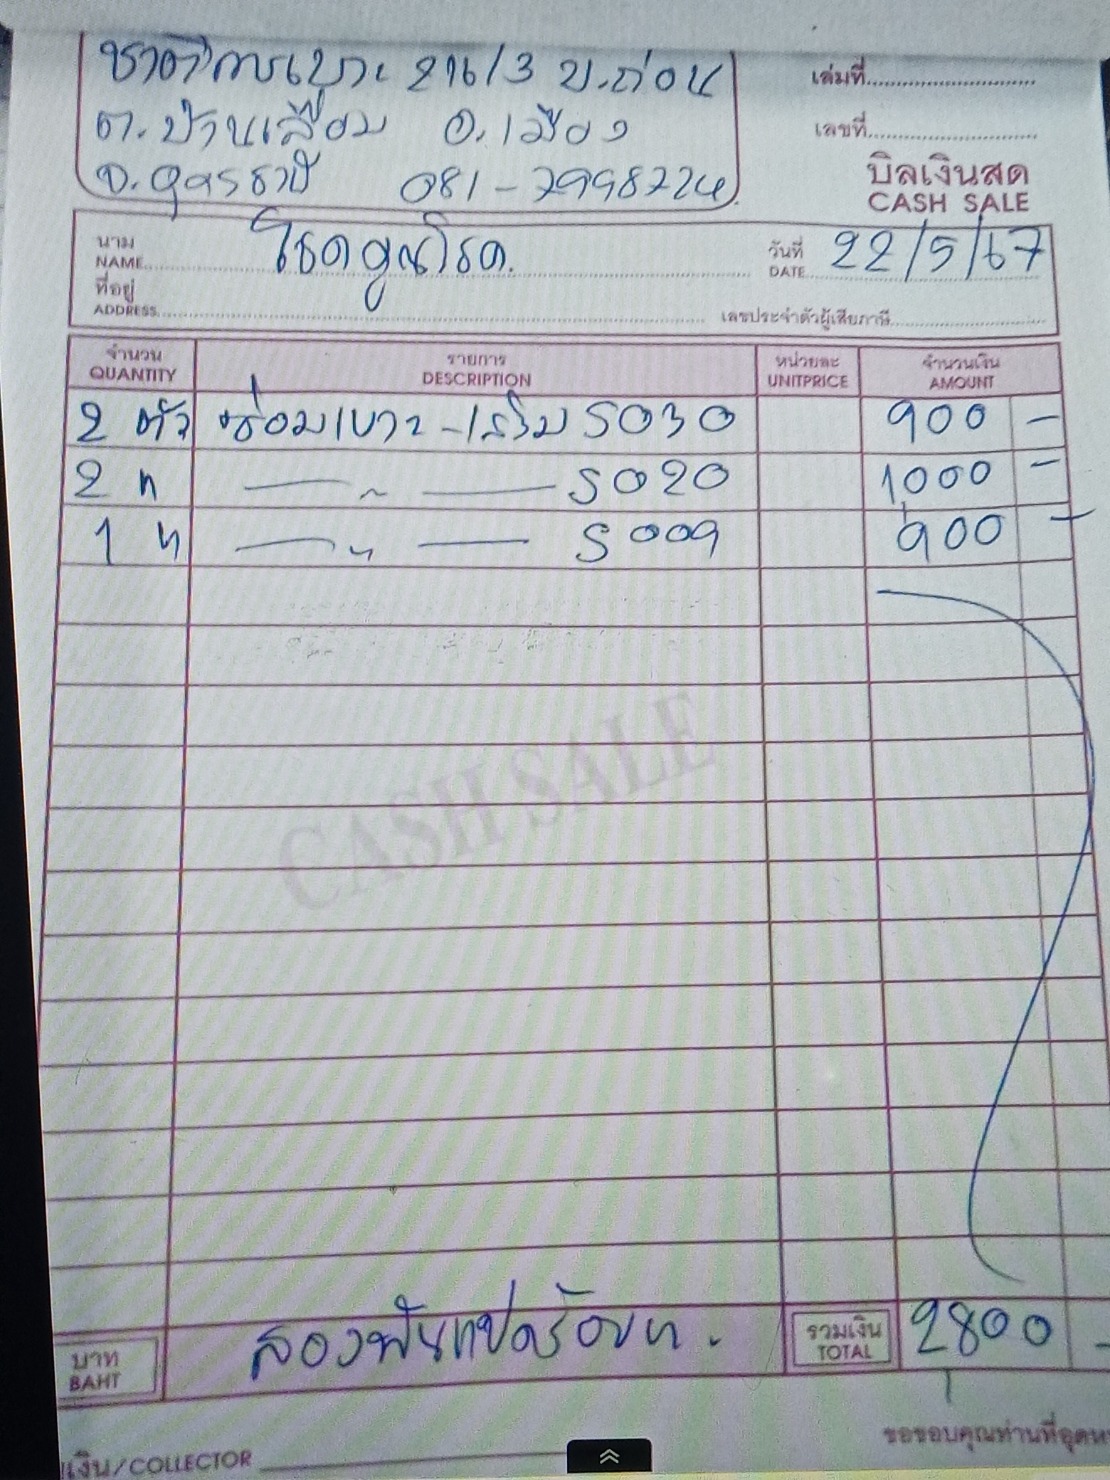 ชาติการเบาะ 216/3 บ.ถ่อน
ต.บ้านเลื่อม อ.เมือง
จ.อุดรธานี 081-7998724
เล่มที่
เลขที่
บิลเงินสด
CASH SALE
นาม
NAME
โชคคูณโชค.
วันที่
DATE
22/5/67
ที่อยู่
ADDRESS
เลขประจำตัวผู้เสียภาษี
จำนวน รายการ หน่วยละ จำนวนเงิน
QUANTITY DESCRIPTION UNITPRICE AMOUNT
2 ตัว ซ่อมเบาะ-เสริม S030 900 -
2 " —— " —— S020 1000 -
1 " —— " —— S009 900 -
CASH SALE
บาท
BAHT
สองพันแปดร้อยบาท.
รวมเงิน
TOTAL
2800 -
ขอขอบคุณท่านที่อุดห
เงิน/COLLECTOR